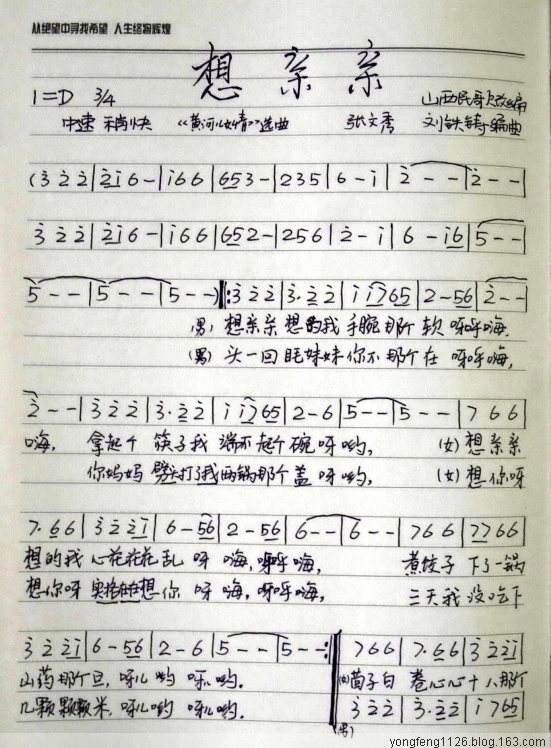 从绝望中寻找希望 人生终究辉煌
想亲亲
1=D 3/4 山西民歌改编
中速 稍快 《黄河儿女情》选曲 张文秀 刘铁铸编曲
(3 2 2 | 2 1 6 - | 1 6 6 | 6 5 3 - | 2 3 5 | 6 - 1 | 2 - - | 2 - - |
3 2 2 | 2 1 6 - | 1 6 6 | 6 5 2 - | 2 5 6 | 2 - 1 | 6 - 1 6 | 5 - - |
5 - - | 5 - - | 5 - - ) ‖: 3 2 2 | 3. 2 2 | 1 1 7 6 5 | 2 - 5 6 | 2 - - |
(男) 想亲亲 想的我 手腕那个 软 呀呼嗨,
(男) 头一回 眊妹妹 你不 那个 在 呀呼嗨,
2 - - | 3 2 2 | 3. 2 2 | 1 1 7 6 5 | 2 - 6 | 5 - - | 5 - - | 7 6 6 |
嗨, 拿起个 筷子我 端不起个 碗 呀哟, (女) 想亲亲
你妈妈 打了我两锅那个 盖 呀哟, (女) 想你呀
7. 6 6 | 3 2 2 1 | 6 - 5 6 | 2 - 5 6 | 6 - - | 6 - - | 7 6 6 | 7 7 6 6 |
想的我 心花花花 乱 呀 嗨, 呀呼嗨, 煮饺子 下了一锅
想你呀 实在在在想 你 呀 嗨, 呀呼嗨, 三天我 没吃下
3 2 2 1 | 6 - 5 6 | 2 - 6 | 5 - - | 5 - - :‖ 7 6 6 | 7. 6 6 | 3 2 2 1 |
山药那个 豆, 呀儿 哟 呀儿 哟. (女) 茴子白 卷心心 十八那个
几颗颗颗 米, 呀儿 哟 呀儿 哟. 3 2 2 | 3. 2 2 | 1 7 6 5 |
(男)
yongfeng1126.blog.163.com